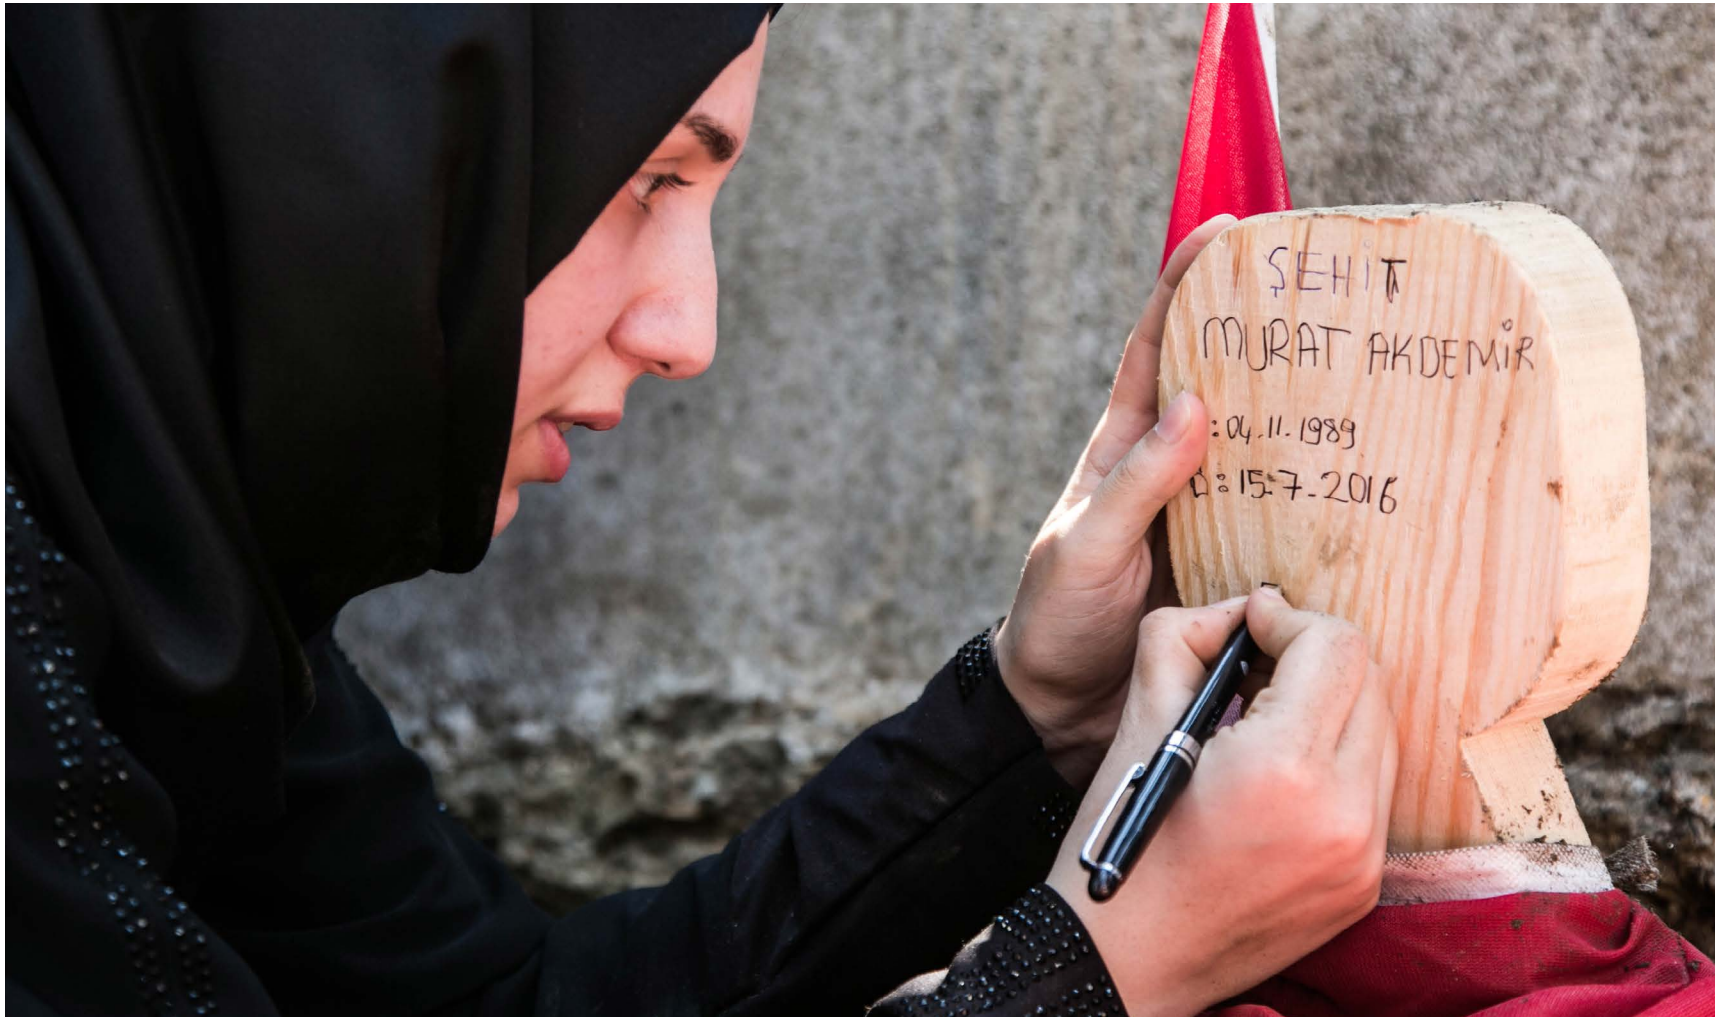 ŞEHİT
MURAT AKDEMİR
: 04.11.1989
Ö: 15.7.2016